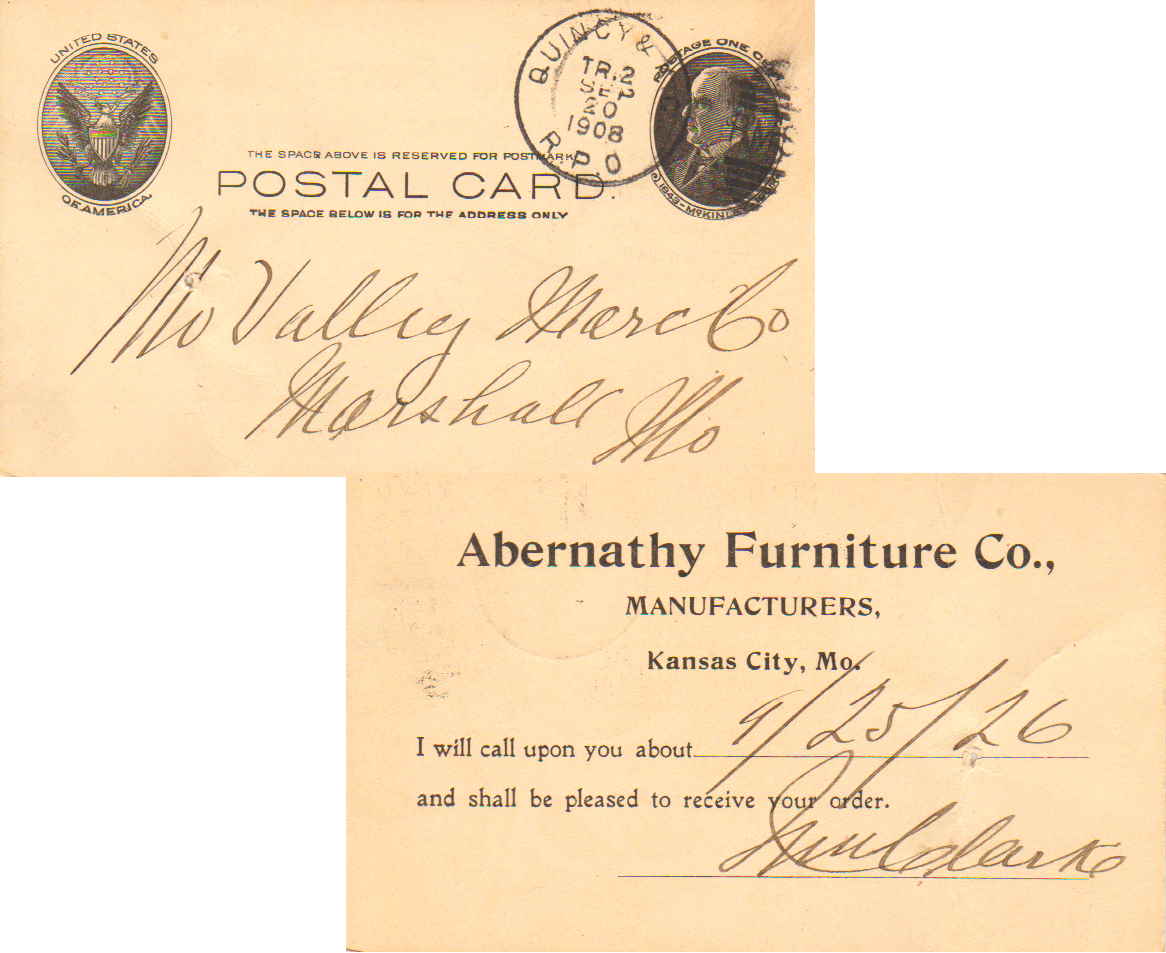 UNITED STATES
OF AMERICA.
QUINCY &
TR.2
SEP
20
1908
R.P.O
POSTAGE ONE
1843-McKINLEY
THE SPACE ABOVE IS RESERVED FOR POSTMARK
POSTAL CARD.
THE SPACE BELOW IS FOR THE ADDRESS ONLY
Mo Valley Merc Co
Marshall Mo
Abernathy Furniture Co.,
MANUFACTURERS,
Kansas City, Mo.
I will call upon you about 9/25/26
and shall be pleased to receive your order.
Clark